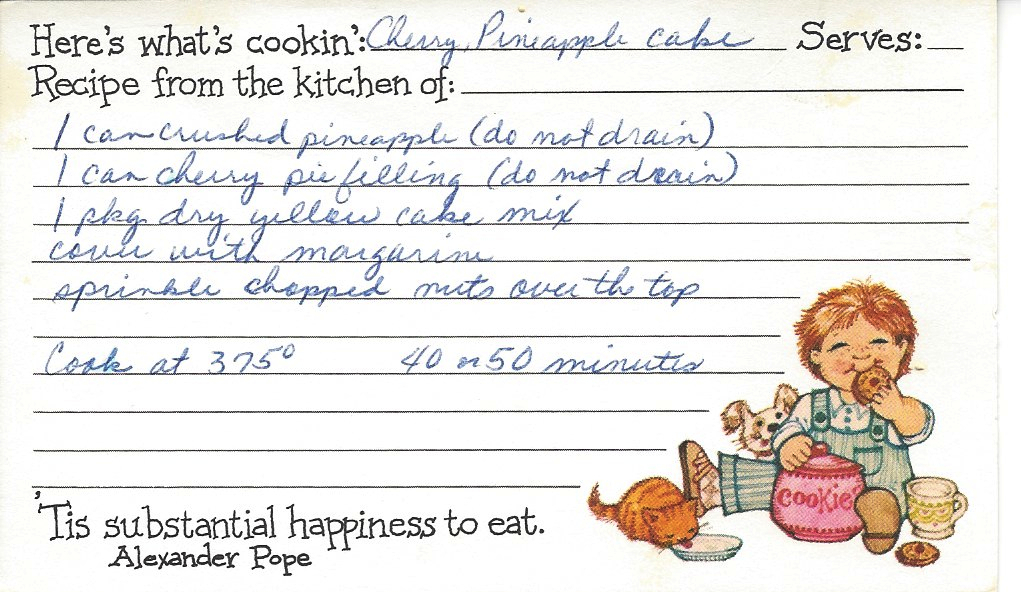 Here's what's cookin': Cherry, Pineapple cake Serves:
Recipe from the kitchen of:
1 can crushed pineapple (do not drain)
1 can cherry pie filling (do not drain)
1 pkg dry yellow cake mix
cover with margarine
sprinkle chopped nuts over the top
Cook at 375° 40 or 50 minutes
cookies
'Tis substantial happiness to eat.
Alexander Pope